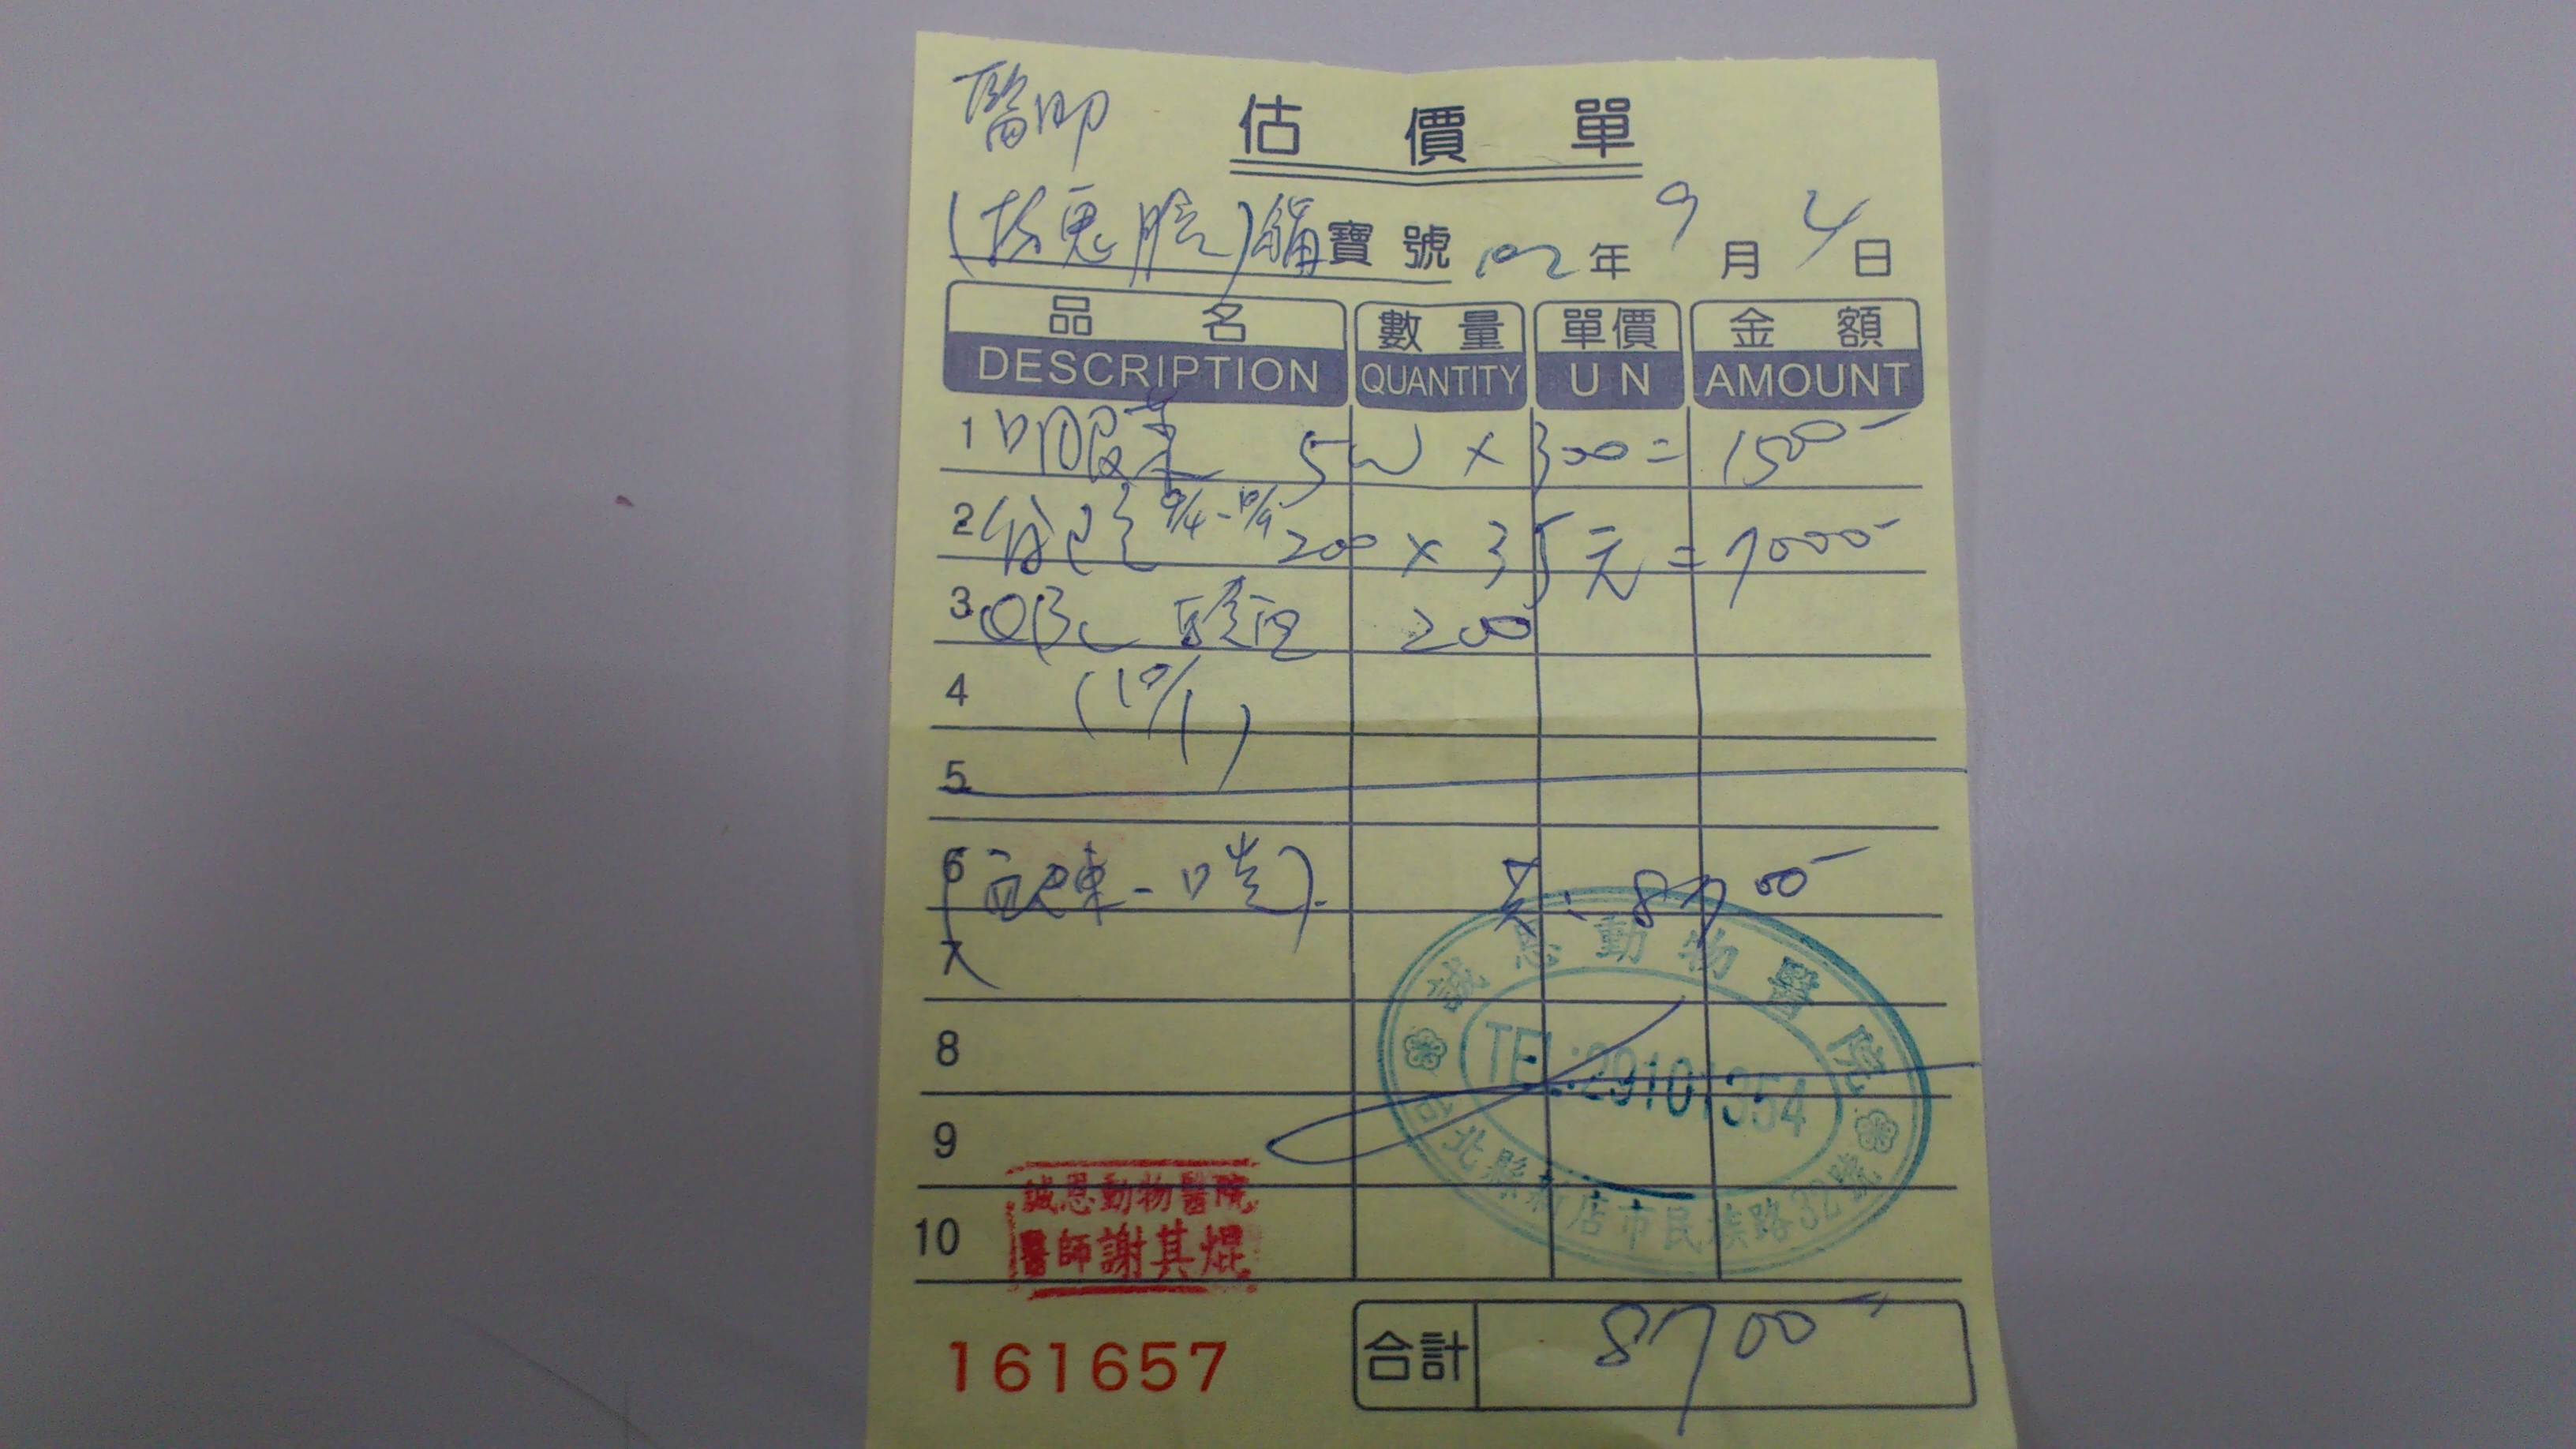 醫師
估價單
寶號 102年 9月 4日
品名 數量 單價 金額
DESCRIPTION QUANTITY UN AMOUNT
1 口服藥 5W × 300 = 1500
2 9/4-10/9 200 × 35元 = 7000
3 驗血 200
4 (10/1)
5
6 共: 8700
8
9
10
誠恩動物醫院
TEL:29101354
台北縣新店市民族路32號
誠恩動物醫院
醫師謝其焜
161657
合計 8700